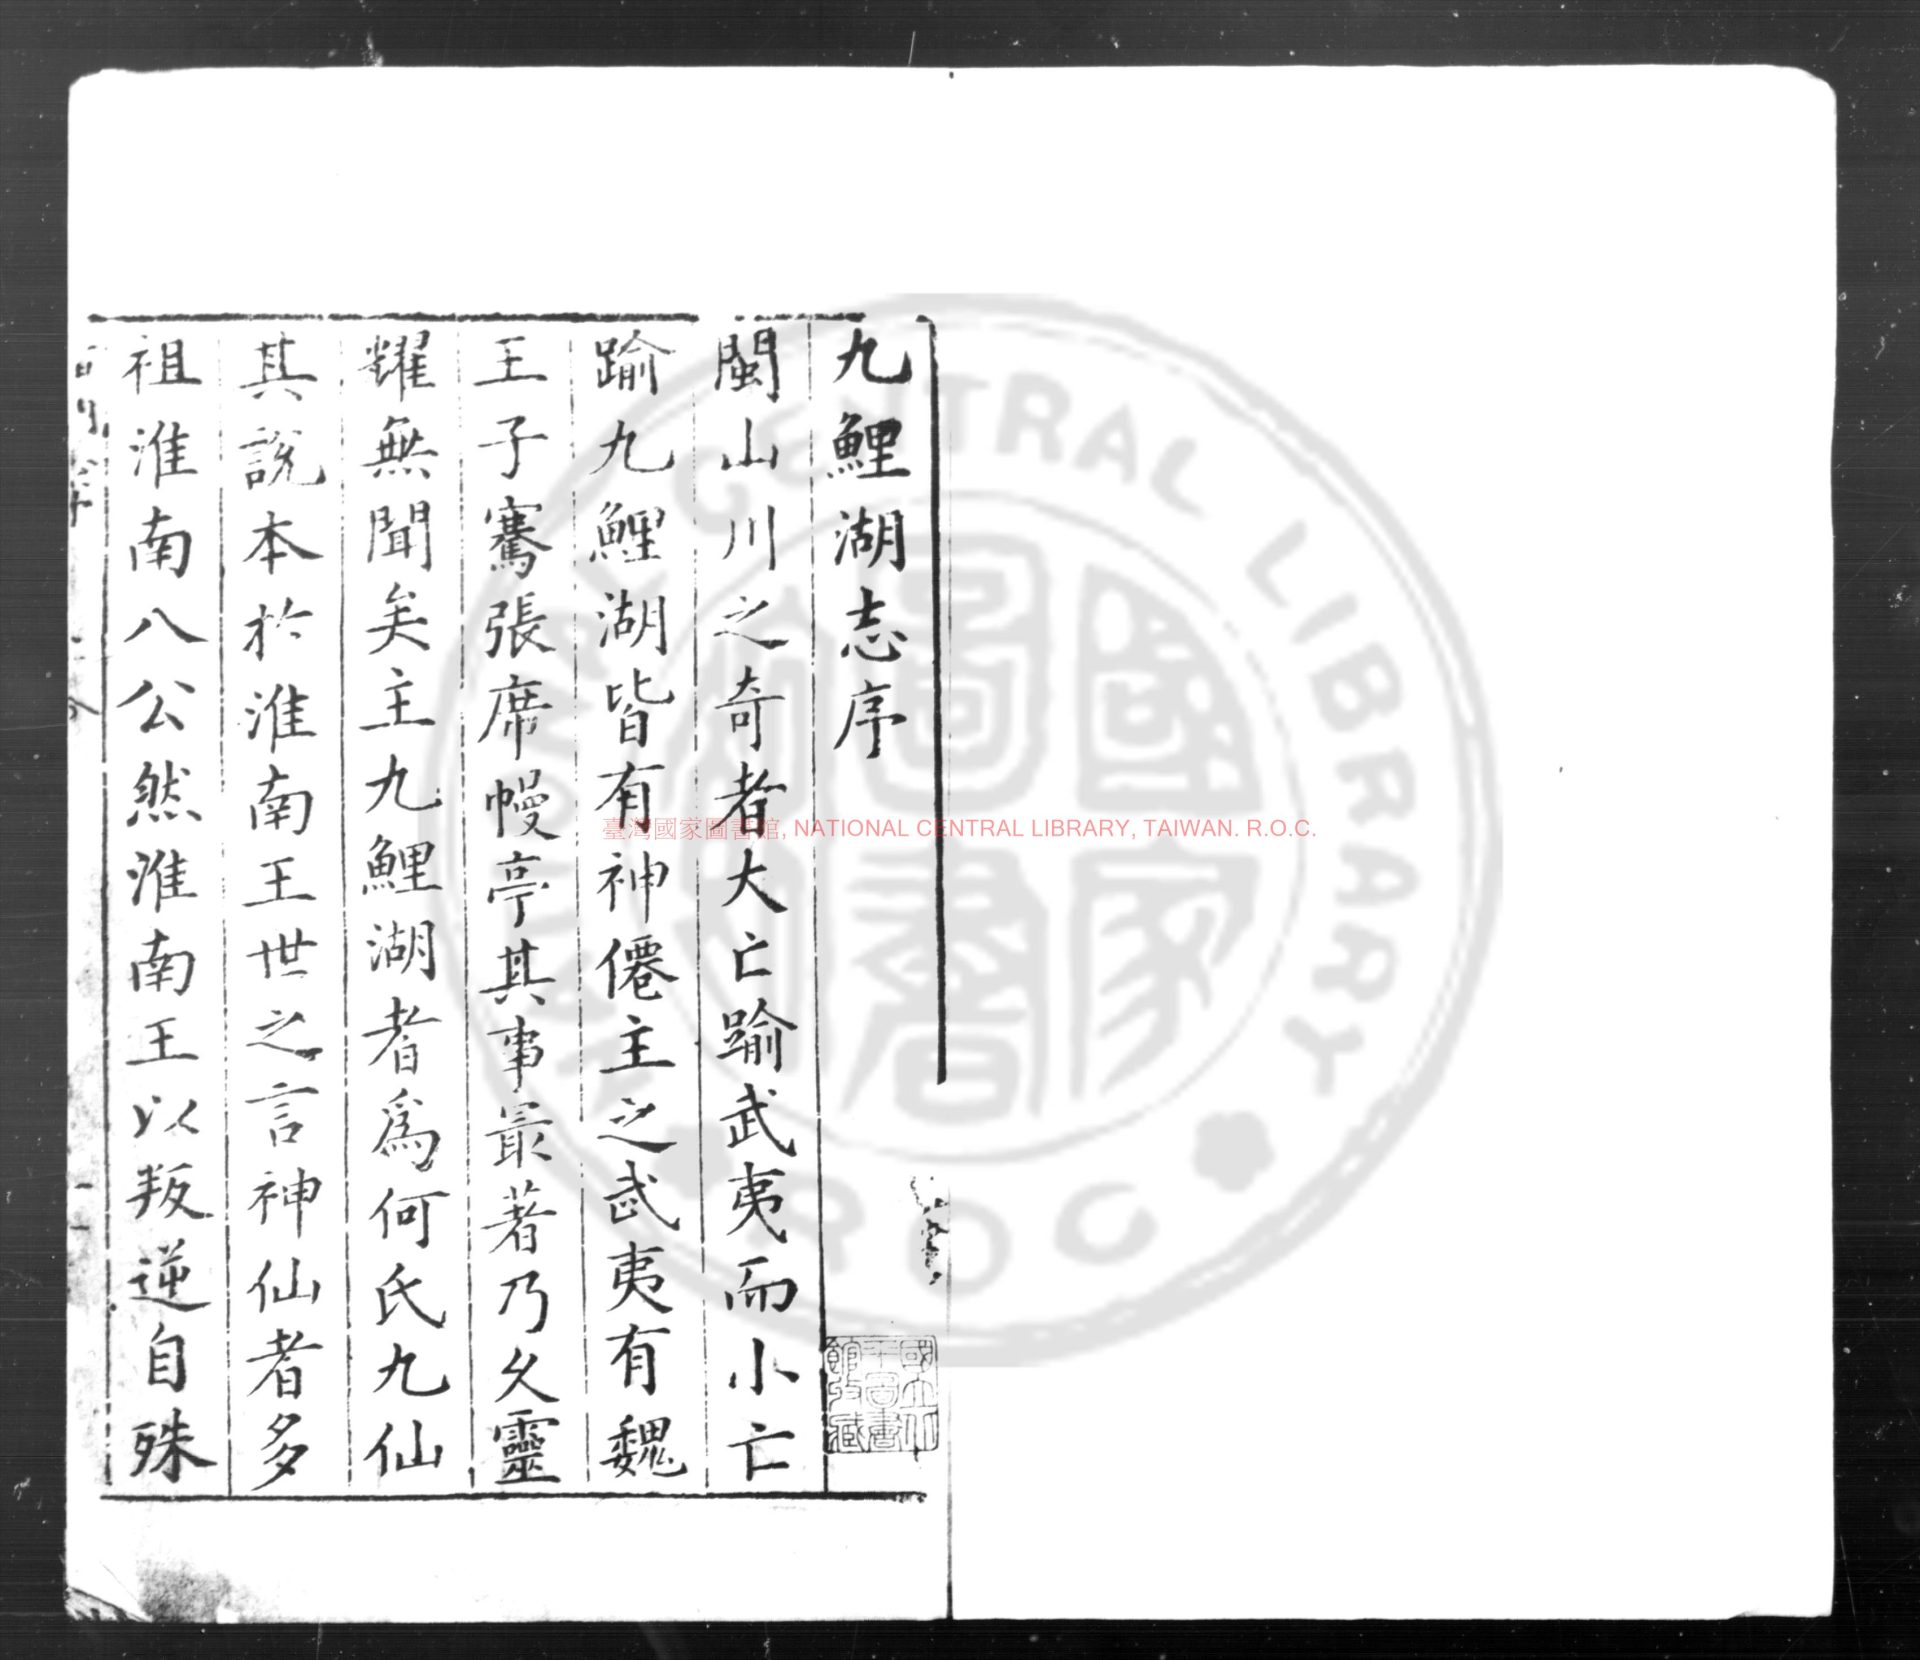 九鯉湖志序
閩山川之奇者大亡踰武夷而小亡
踰九鯉湖皆有神僊主之武夷有魏
王子騫張席幔亭其事最著乃久靈
耀無聞矣主九鯉湖者為何氏九仙
其說本於淮南王世之言神仙者多
祖淮南八公然淮南王以叛逆自殊
國立中
央圖書
館收藏
臺灣國家圖書館, NATIONAL CENTRAL LIBRARY, TAIWAN. R.O.C.
NATIONAL CENTRAL LIBRARY
R.O.C
國家
圖書